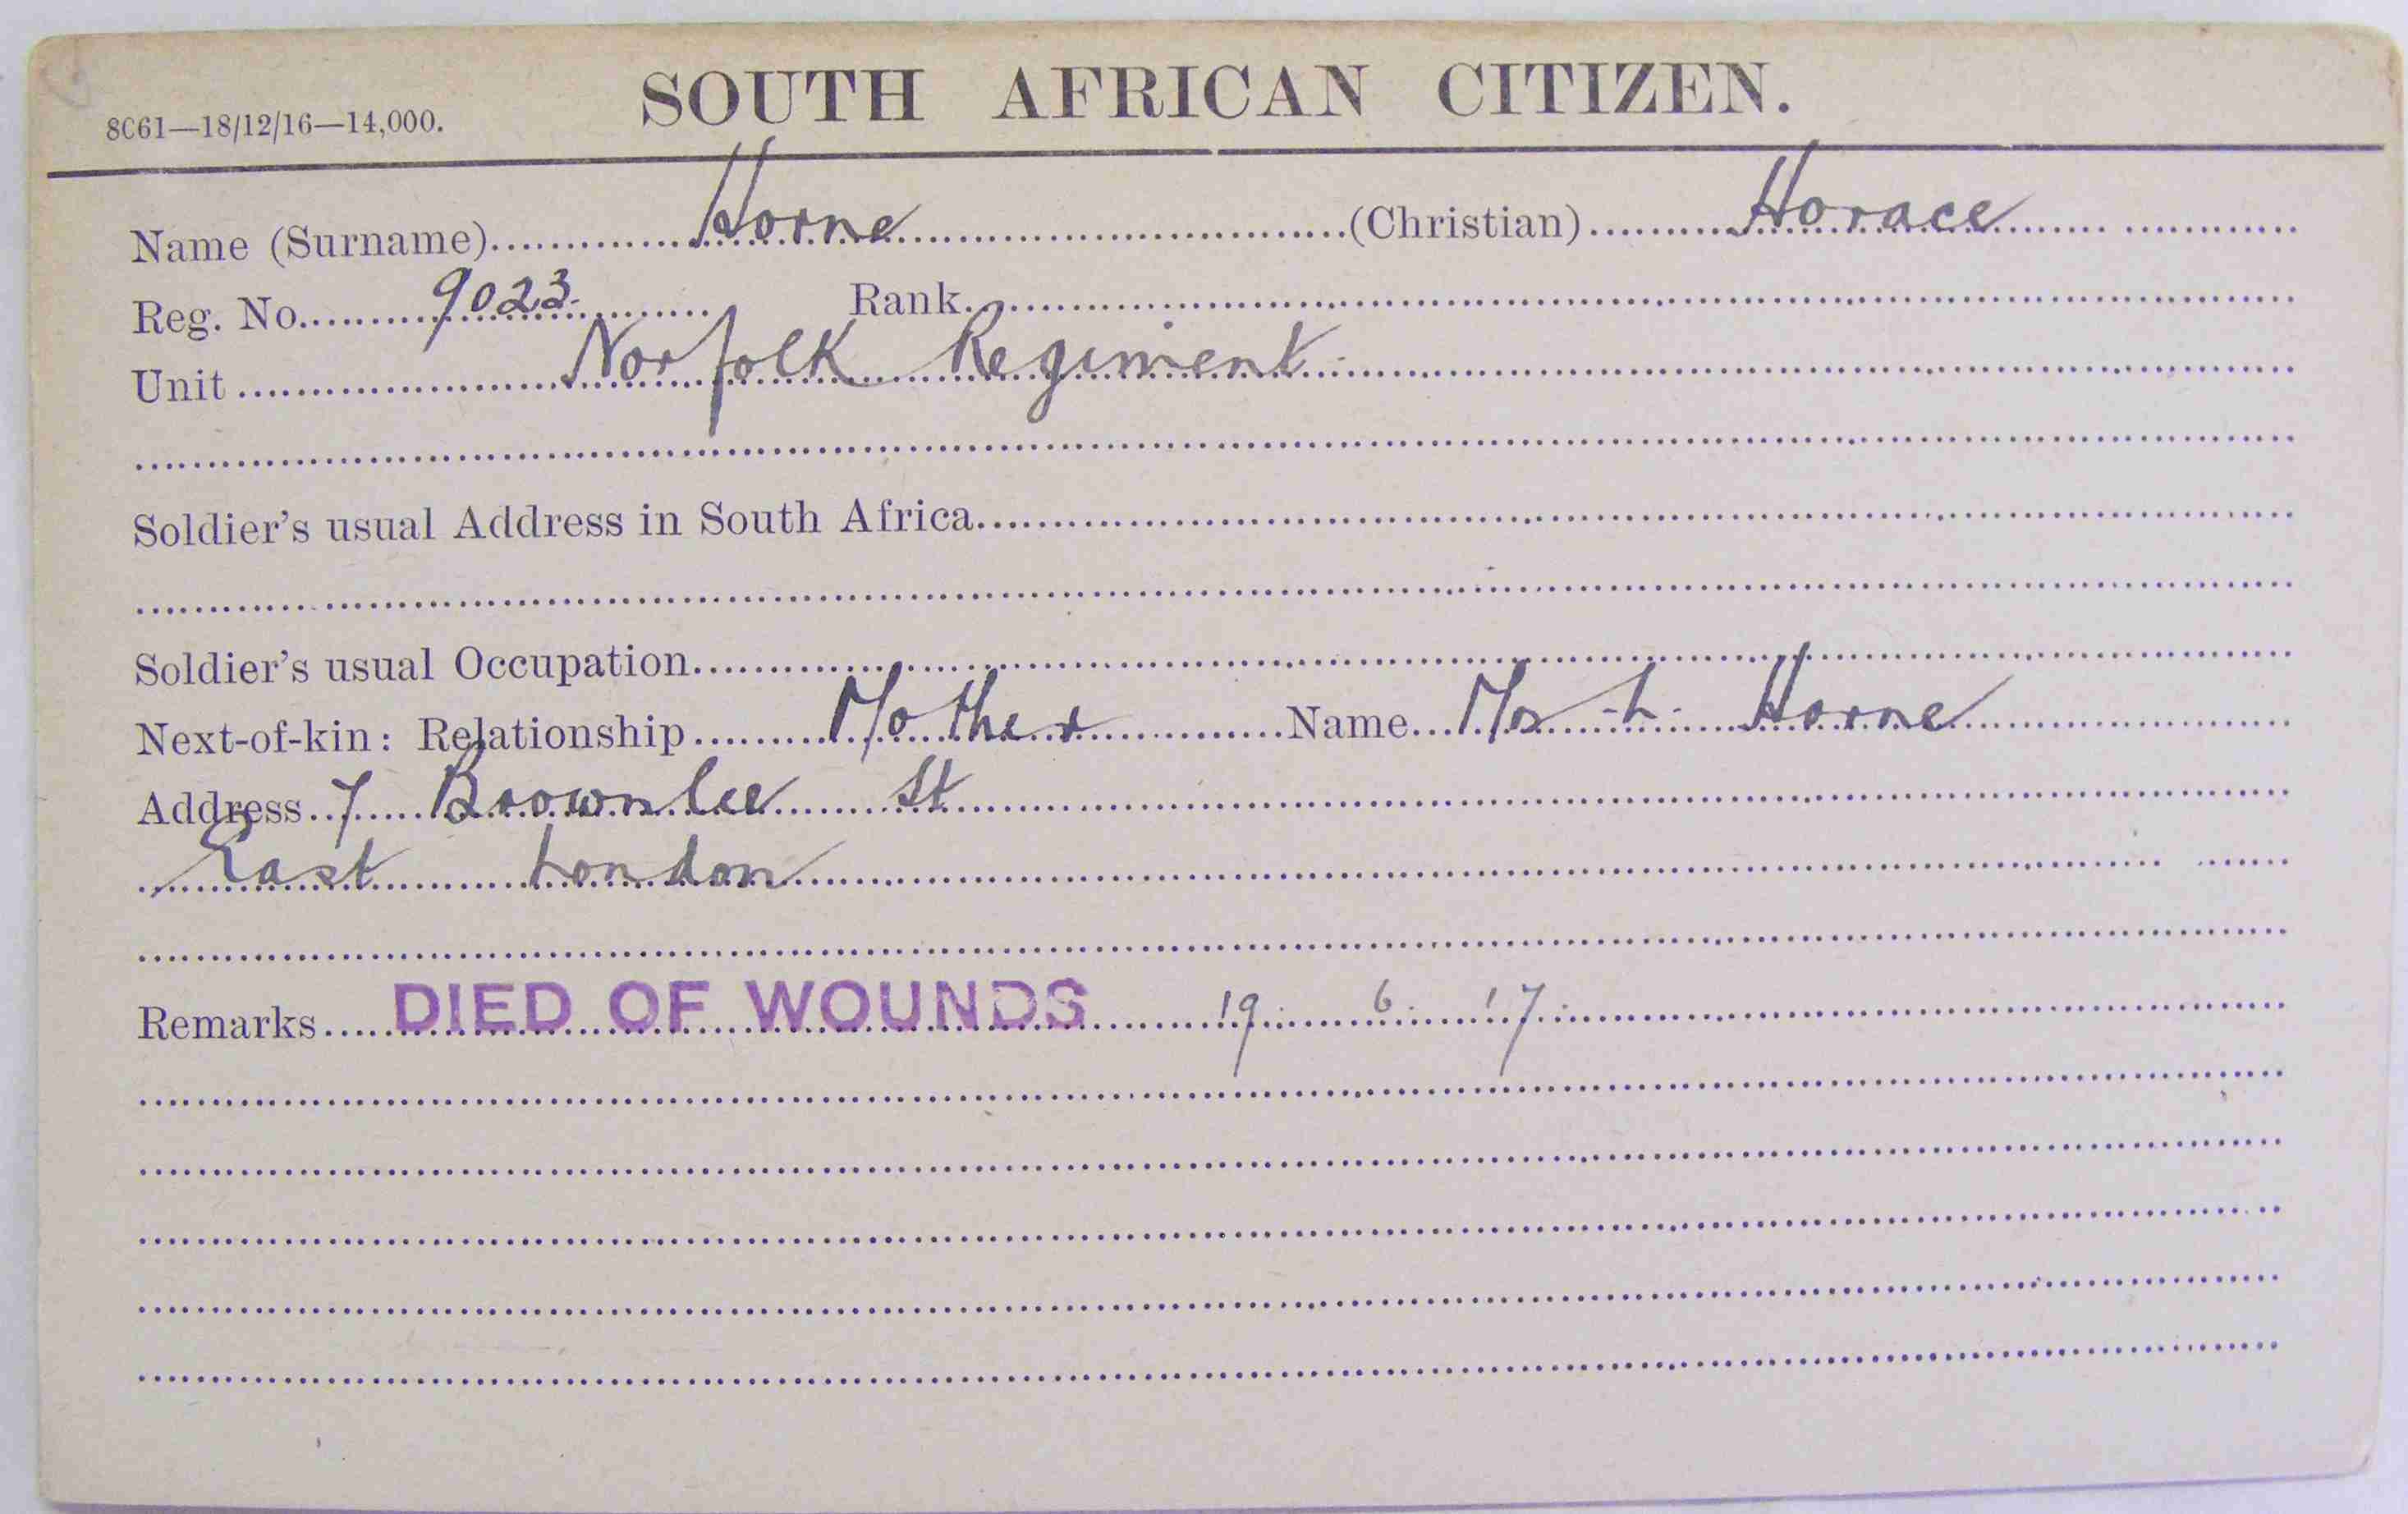 SOUTH AFRICAN CITIZEN.
8C61—18/12/16—14,000.
Name (Surname) Horne (Christian) Horace
Reg. No. 9023. Rank
Unit Norfolk Regiment.
Soldier's usual Address in South Africa
Soldier's usual Occupation
Next-of-kin: Relationship Mother Name Mrs L. Horne
Address 7 Brownlee St
East London
Remarks DIED OF WOUNDS 19. 6. 17.